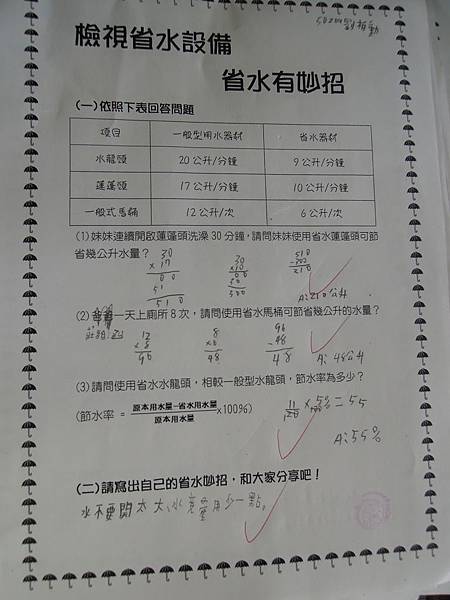 檢視省水設備
省水有妙招
(一)依照下表回答問題
項目 一般型用水器材 省水器材
水龍頭 20公升/分鐘 9公升/分鐘
蓮蓬頭 17公升/分鐘 10公升/分鐘
一般式馬桶 12公升/次 6公升/次
(1)妹妹連續開啟蓮蓬頭洗澡30分鐘,請問妹妹使用省水蓮蓬頭可節
省幾公升水量?
30 30 510
×17 ×10 -300
00 210
51 30
510 300
A:210公升
(2) 一天上廁所8次,請問使用省水馬桶可節省幾公升的水量?
12 8 96
×8 ×6 -48
96 48 48
A:48公升
(3)請問使用省水水龍頭,相較一般型水龍頭,節水率為多少?
(節水率 = 原本用水量-省水用水量/原本用水量 ×100%)
11/20 × = 55
A:55%
(二)請寫出自己的省水妙招,和大家分享吧!
水不要開太大,水 用少一點。